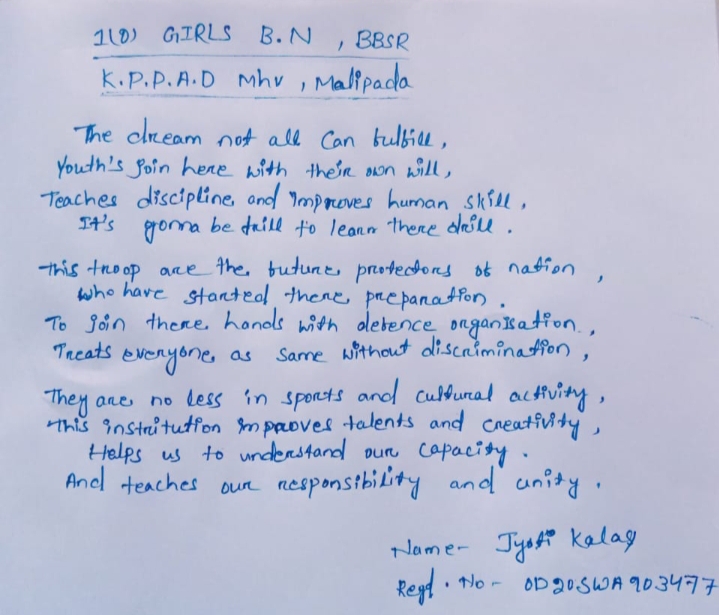 1(O) GIRLS B.N , BBSR
K.P.P.A.D Mhv , Malipada
The dream not all Can fulfill,
Youth's join here with their own will,
Teaches discipline and Improves human skill,
It's gonna be thrill to learn there drill.
This troop are the future protectors of nation ,
who have started there preparation.
To join there hands with defence organisation.,
Treats everyone as same without discrimination ,
They are no less in sports and cultural activity ,
This institution improves talents and creativity ,
Helps us to understand our Capacity .
And teaches our responsibility and unity .
Name- Jyoti
Regd. No - OD20SWA903477